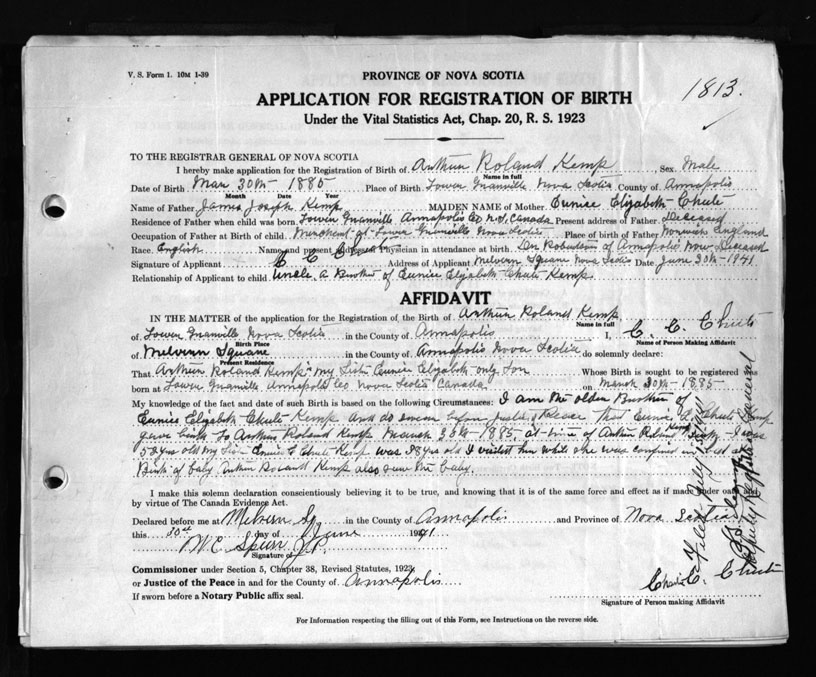 V. S. Form 1. 10M 1-39
PROVINCE OF NOVA SCOTIA
1813.
APPLICATION FOR REGISTRATION OF BIRTH
Under the Vital Statistics Act, Chap. 20, R. S. 1923
TO THE REGISTRAR GENERAL OF NOVA SCOTIA
I hereby make application for the Registration of Birth of Arthur Roland Kemp Sex Male
Name in full
Date of Birth Mar 30th 1885 Place of Birth Lower Granville Nova Scotia County of Annapolis
Month Date Year
Name of Father James Joseph Kemp MAIDEN NAME of Mother Eunice Elizabeth Chute
Residence of Father when child was born Lower Granville Annapolis Co N.S. Canada Present address of Father Deceased
Occupation of Father at Birth of child Merchant at Lower Granville Nova Scotia Place of birth of Father Norwich England
Race English Name and present Address of Physician in attendance at birth Dr. Robinson of Annapolis Now Deceased
Signature of Applicant C C Chute Address of Applicant Melvern Square Nova Scotia Date June 30th 1941
Relationship of Applicant to child Uncle. a Brother of Eunice Elizabeth Chute Kemp
AFFIDAVIT
IN THE MATTER of the application for the Registration of the Birth of Arthur Roland Kemp
Name in full
of Lower Granville Nova Scotia in the County of Annapolis I, C. C. Chute
Birth Place Name of Person Making Affidavit
of Melvern Square in the County of Annapolis Nova Scotia do solemnly declare:
Present Residence
That Arthur Roland Kemp my Sister Eunice Elizabeth only Son Whose Birth is sought to be registered was
born at Lower Granville Annapolis Co Nova Scotia Canada on March 30th 1885
My knowledge of the fact and date of such Birth is based on the following Circumstances: I am the older Brother of
Eunice Elizabeth Chute Kemp and do swear that Eunice E Chute Kemp
gave birth to Arthur Roland Kemp March 30th 1885. at time of Arthur Roland Kemp Birth I was
yrs old my Sister Eunice E Chute Kemp was 28 yrs old I visited her while she was confined in bed at
Birth of baby Arthur Roland Kemp also saw the baby.
I make this solemn declaration conscientiously believing it to be true, and knowing that it is of the same force and effect as if made under oath and
by virtue of The Canada Evidence Act.
Declared before me at Melvern Sq in the County of Annapolis and Province of Nova Scotia
this 30th day of June 1941
W C Spurr J.P.
Signature of
Commissioner under Section 5, Chapter 38, Revised Statutes, 1923
or Justice of the Peace in and for the County of Annapolis
If sworn before a Notary Public affix seal.
C. Chute
Signature of Person making Affidavit
Deputy Registrar General
For Information respecting the filling out of this Form, see Instructions on the reverse side.